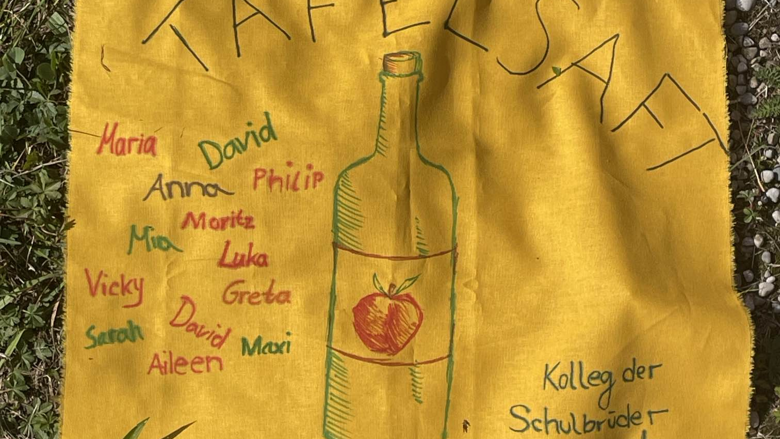 TAFELSAFT
Maria
David
Anna
Philip
Moritz
Mia
Luka
Vicky
Greta
David
Sarah
Maxi
Aileen
Kolleg der
Schulbrüder